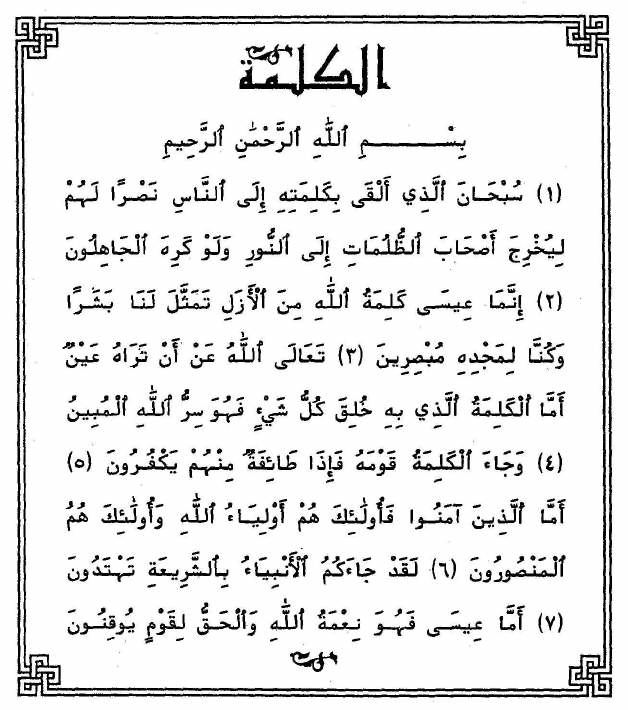 الكلمة
بِسْمِ ٱللّٰهِ ٱلرَّحْمٰنِ ٱلرَّحِيمِ
(١) سُبْحَانَ ٱلَّذِي أَلْقَى بِكَلِمَتِهِ إِلَى ٱلنَّاسِ نَصْرًا لَهُمْ
لِيُخْرِجَ أَصْحَابَ ٱلظُّلُمَاتِ إِلَى ٱلنُّورِ وَلَوْ كَرِهَ ٱلْجَاهِلُونَ
(٢) إِنَّمَا عِيسَى كَلِمَةُ ٱللّٰهِ مِنَ ٱلْأَزَلِ تَمَثَّلَ لَنَا بَشَرًا
وَكُنَّا لِمَجْدِهِ مُبْصِرِينَ (٣) تَعَالَى ٱللّٰهُ عَنْ أَنْ تَرَاهُ عَيْنٌ
أَمَّا ٱلْكَلِمَةُ ٱلَّذِي بِهِ خُلِقَ كُلُّ شَيْءٍ فَهُوَ سِرُّ ٱللّٰهِ ٱلْمُبِينُ
(٤) وَجَاءَ ٱلْكَلِمَةُ قَوْمَهُ فَإِذَا طَائِفَةٌ مِنْهُمْ يَكْفُرُونَ (٥)
أَمَّا ٱلَّذِينَ آمَنُوا فَأُولَٰئِكَ هُمْ أَوْلِيَاءُ ٱللّٰهِ وَأُولَٰئِكَ هُمُ
ٱلْمَنْصُورُونَ (٦) لَقَدْ جَاءَكُمُ ٱلْأَنْبِيَاءُ بِٱلشَّرِيعَةِ تَهْتَدُونَ
(٧) أَمَّا عِيسَى فَهُوَ نِعْمَةُ ٱللّٰهِ وَٱلْحَقُّ لِقَوْمٍ يُوقِنُونَ